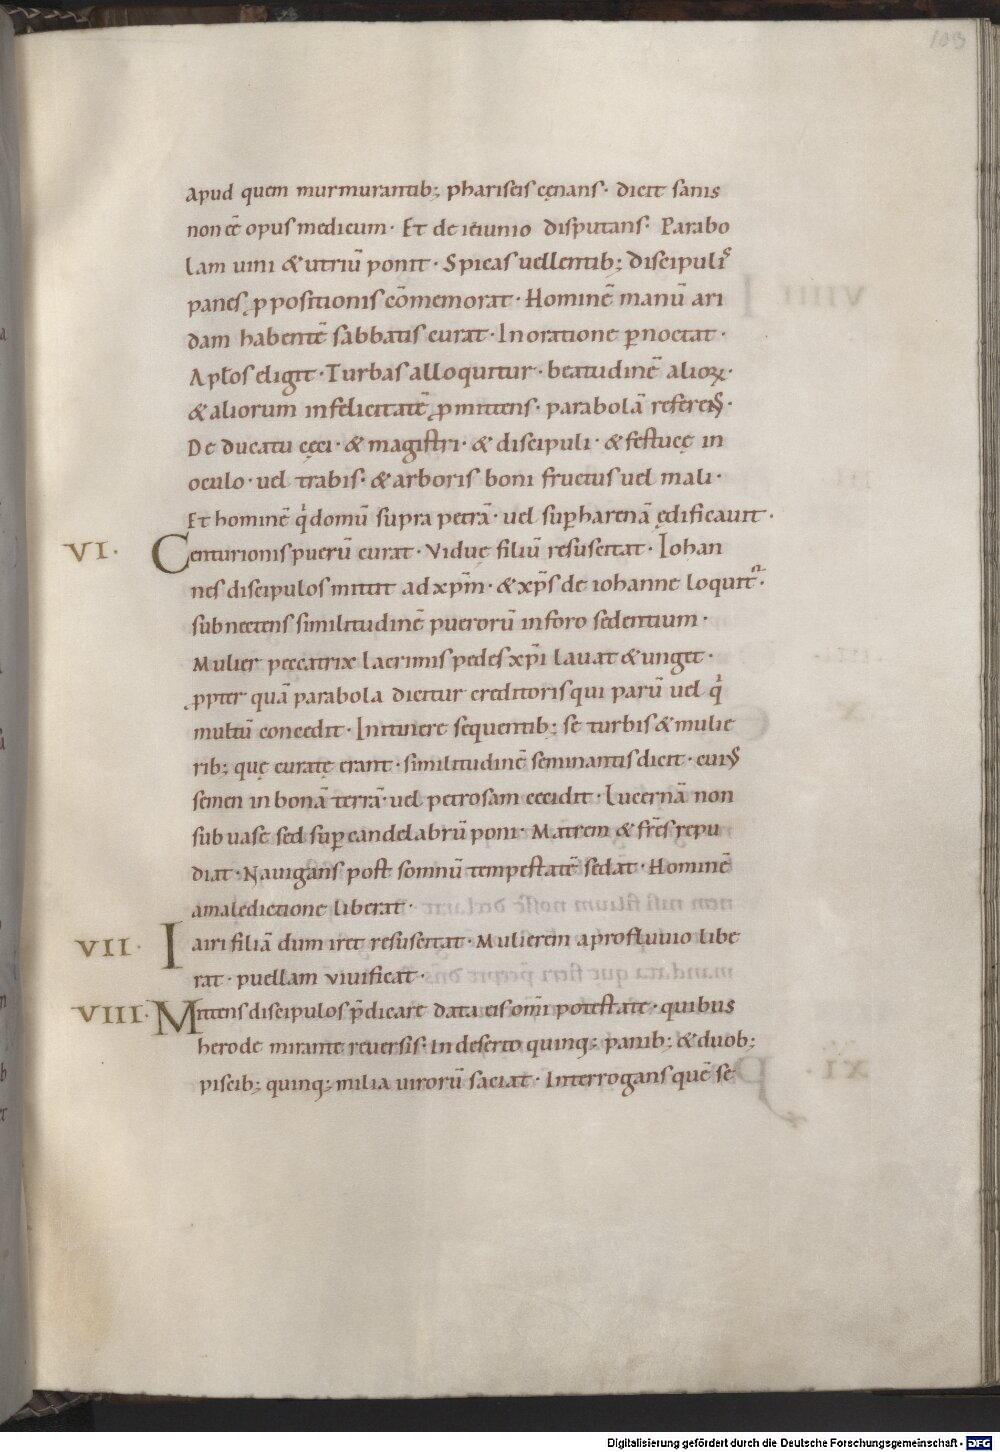 103
apud quem murmurantib; phariseis cęnans · dicit sanis
non eē opus medicum · Et de ieiunio disputans · Parabo
lam uini & utriū ponit · Spicas uellentib; discipulis
panes ꝓpositionis cōmemorat · Hominē manū ari
dam habentē sabbatis curat · In oratione ꝑnoctat ·
Aptos eligit · Turbas alloquitur · beatudinē alioꝝ ·
& aliorum infelicitatē ꝓmittens · parabolā referens ·
De ducatu cęci · & magistri · & discipuli · & festucę in
oculo · uel trabis · & arboris boni fructus uel mali ·
Et hominē qͥ domū supra petrā · uel suꝑ harenā ędificauit ·
VI · Centurionis puerū curat · Viduę filiū resuscitat · Iohan
nes discipulos mittit ad xp̄m · & xp̄s de iohanne loquit̄ ·
subnectens similitudinē puerorū in foro sedentium ·
Mulier peccatrix lacrimis pedes xp̄i lauat & unget ·
ꝓpter quā parabola dicitur creditoris qui parū uel qͥ
multū concedit · In itinere sequentib; se turbis & mulie
rib; quę curatę erant · similitudinē seminantis dicit · cuius
semen in bonā terrā · uel petrosam cecidit · Lucernā non
sub uase sed suꝑ candelabrū poni · Matrem & frēs repu
diat · Nauigans post somnū tempestatē sedat · Hominē
a maledictione liberat ·
VII · Iairi filiā dum iret resuscitat · Mulierem a profluuio libe
rat · puellam viuificat ·
VIII · Mittens discipulos p̄dicare data eis om̄i potestate · quibus
herode mirante reuersis · in deserto quinq; panib; & duob;
piscib; quinq; milia uirorū saciat · Interrogans quē se
Digitalisierung gefördert durch die Deutsche Forschungsgemeinschaft - DFG